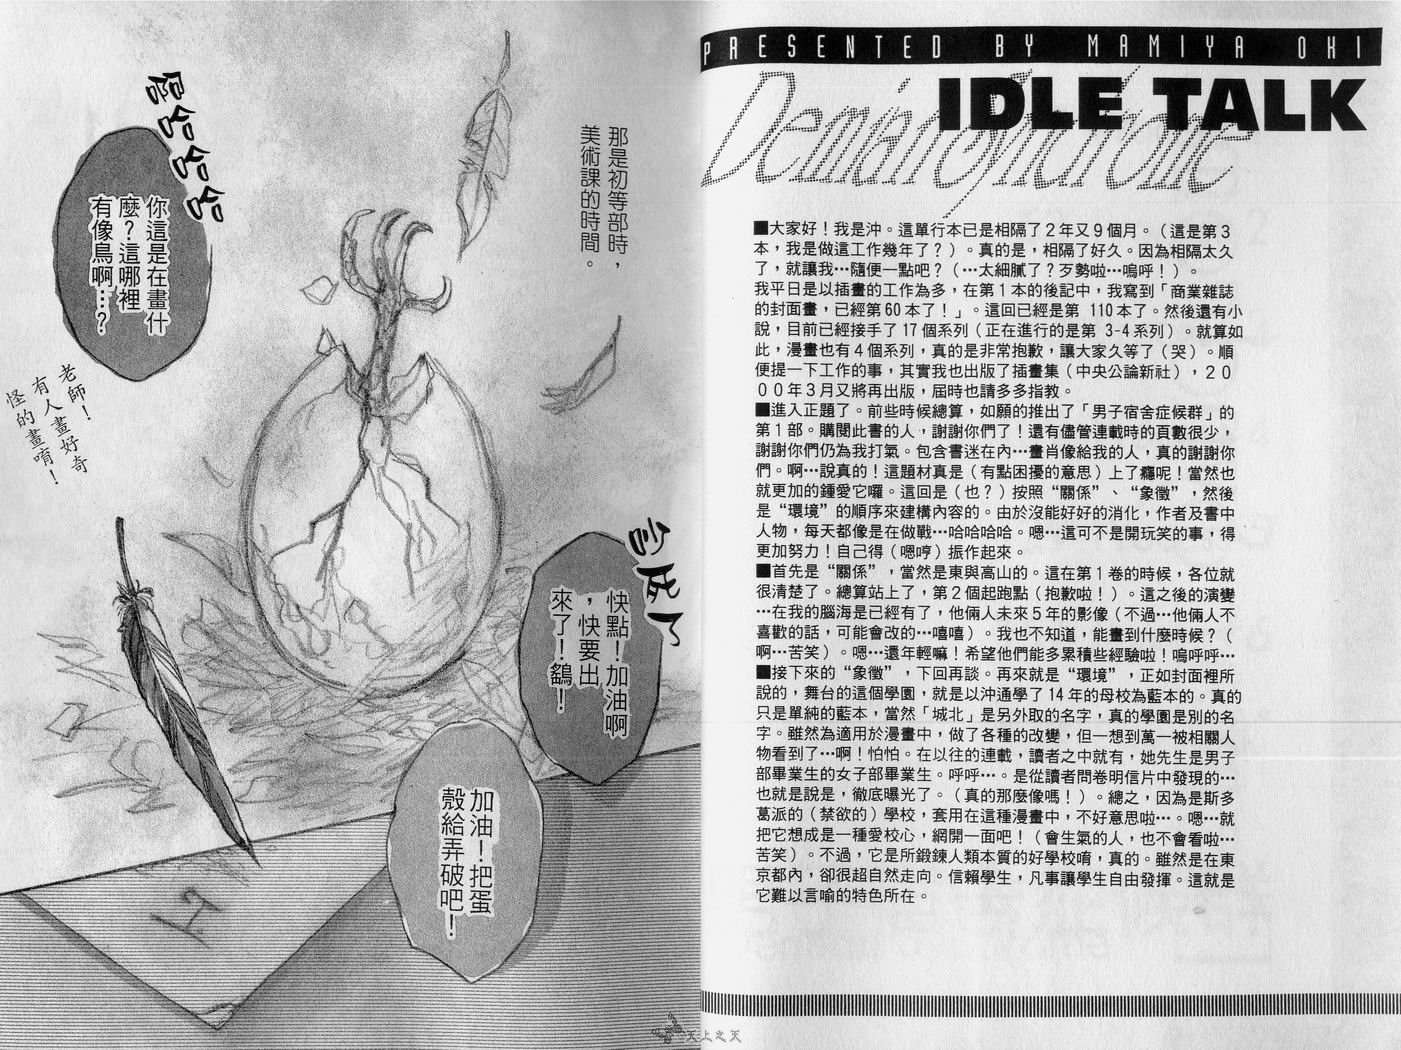 PRESENTED BY MAMIYA OKI
IDLE TALK
Demian Syndrome
■大家好！我是沖。這單行本已是相隔了２年又９個月。（這是第３
本，我是做這工作幾年了？）。真的是，相隔了好久。因為相隔太久
了，就讓我…隨便一點吧？（…太細膩了？歹勢啦…嗚呼！）。
我平日是以插畫的工作為多，在第１本的後記中，我寫到「商業雜誌
的封面畫，已經第60本了！」。這回已經是第 110本了。然後還有小
說，目前已經接手了17個系列（正在進行的是第 3-4系列）。就算如
此，漫畫也有４個系列，真的是非常抱歉，讓大家久等了（哭）。順
便提一下工作的事，其實我也出版了插畫集（中央公論新社），２０
００年３月又將再出版，屆時也請多多指教。
■進入正題了。前些時候總算，如願的推出了「男子宿舍症候群」的
第１部。購閱此書的人，謝謝你們了！還有儘管連載時的頁數很少，
謝謝你們仍為我打氣。包含書迷在內…畫肖像給我的人，真的謝謝你
們。啊…說真的！這題材真是（有點困擾的意思）上了癮呢！當然也
就更加的鍾愛它囉。這回是（也？）按照“關係”、“象徵”，然後
是“環境”的順序來建構內容的。由於沒能好好的消化，作者及書中
人物，每天都像是在做戰…哈哈哈哈。嗯…這可不是開玩笑的事，得
更加努力！自己得（嗯哼）振作起來。
■首先是“關係”，當然是東與高山的。這在第１卷的時候，各位就
很清楚了。總算站上了，第２個起跑點（抱歉啦！）。這之後的演變
…在我的腦海是已經有了，他倆人未來５年的影像（不過…他倆人不
喜歡的話，可能會改的…嘻嘻）。我也不知道，能畫到什麼時候？（
啊…苦笑）。嗯…還年輕嘛！希望他們能多累積些經驗啦！嗚呼呼…
■接下來的“象徵”，下回再談。再來就是“環境”，正如封面裡所
說的，舞台的這個學園，就是以沖通學了14年的母校為藍本的。真的
只是單純的藍本，當然「城北」是另外取的名字，真的學園是別的名
字。雖然為適用於漫畫中，做了各種的改變，但一想到萬一被相關人
物看到了…啊！怕怕。在以往的連載，讀者之中就有，她先生是男子
部畢業生的女子部畢業生。呼呼…。是從讀者問卷明信片中發現的…
也就是說是，徹底曝光了。（真的那麼像嗎！）。總之，因為是斯多
葛派的（禁欲的）學校，套用在這種漫畫中，不好意思啦…。嗯…就
把它想成是一種愛校心，網開一面吧！（會生氣的人，也不會看啦…
苦笑）。不過，它是所鍛鍊人類本質的好學校唷，真的。雖然是在東
京都內，卻很超自然走向。信賴學生，凡事讓學生自由發揮。這就是
它難以言喻的特色所在。
那是初等部時，
美術課的時間。
哈哈哈哈
你這是在畫什
麼？這哪裡
有像鳥啊…？
老師！
有人畫好奇
怪的畫唷！
吵死了
快點！加油啊
，快要出
來了！鷂！
加油！把蛋
殼給弄破吧！
天上之天